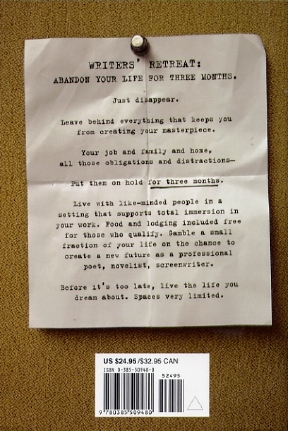 WRITERS' RETREAT:
ABANDON YOUR LIFE FOR THREE MONTHS.
Just disappear.
Leave behind everything that keeps you
from creating your masterpiece.
Your job and family and home,
all those obligations and distractions—
Put them on hold for three months.
Live with like-minded people in a
setting that supports total immersion in
your work. Food and lodging included free
for those who qualify. Gamble a small
fraction of your life on the chance to
create a new future as a professional
poet, novelist, screenwriter.
Before it's too late, live the life you
dream about. Spaces very limited.
US $24.95/$32.95 CAN
ISBN 0-385-50948-0
52495
9 780385 509480